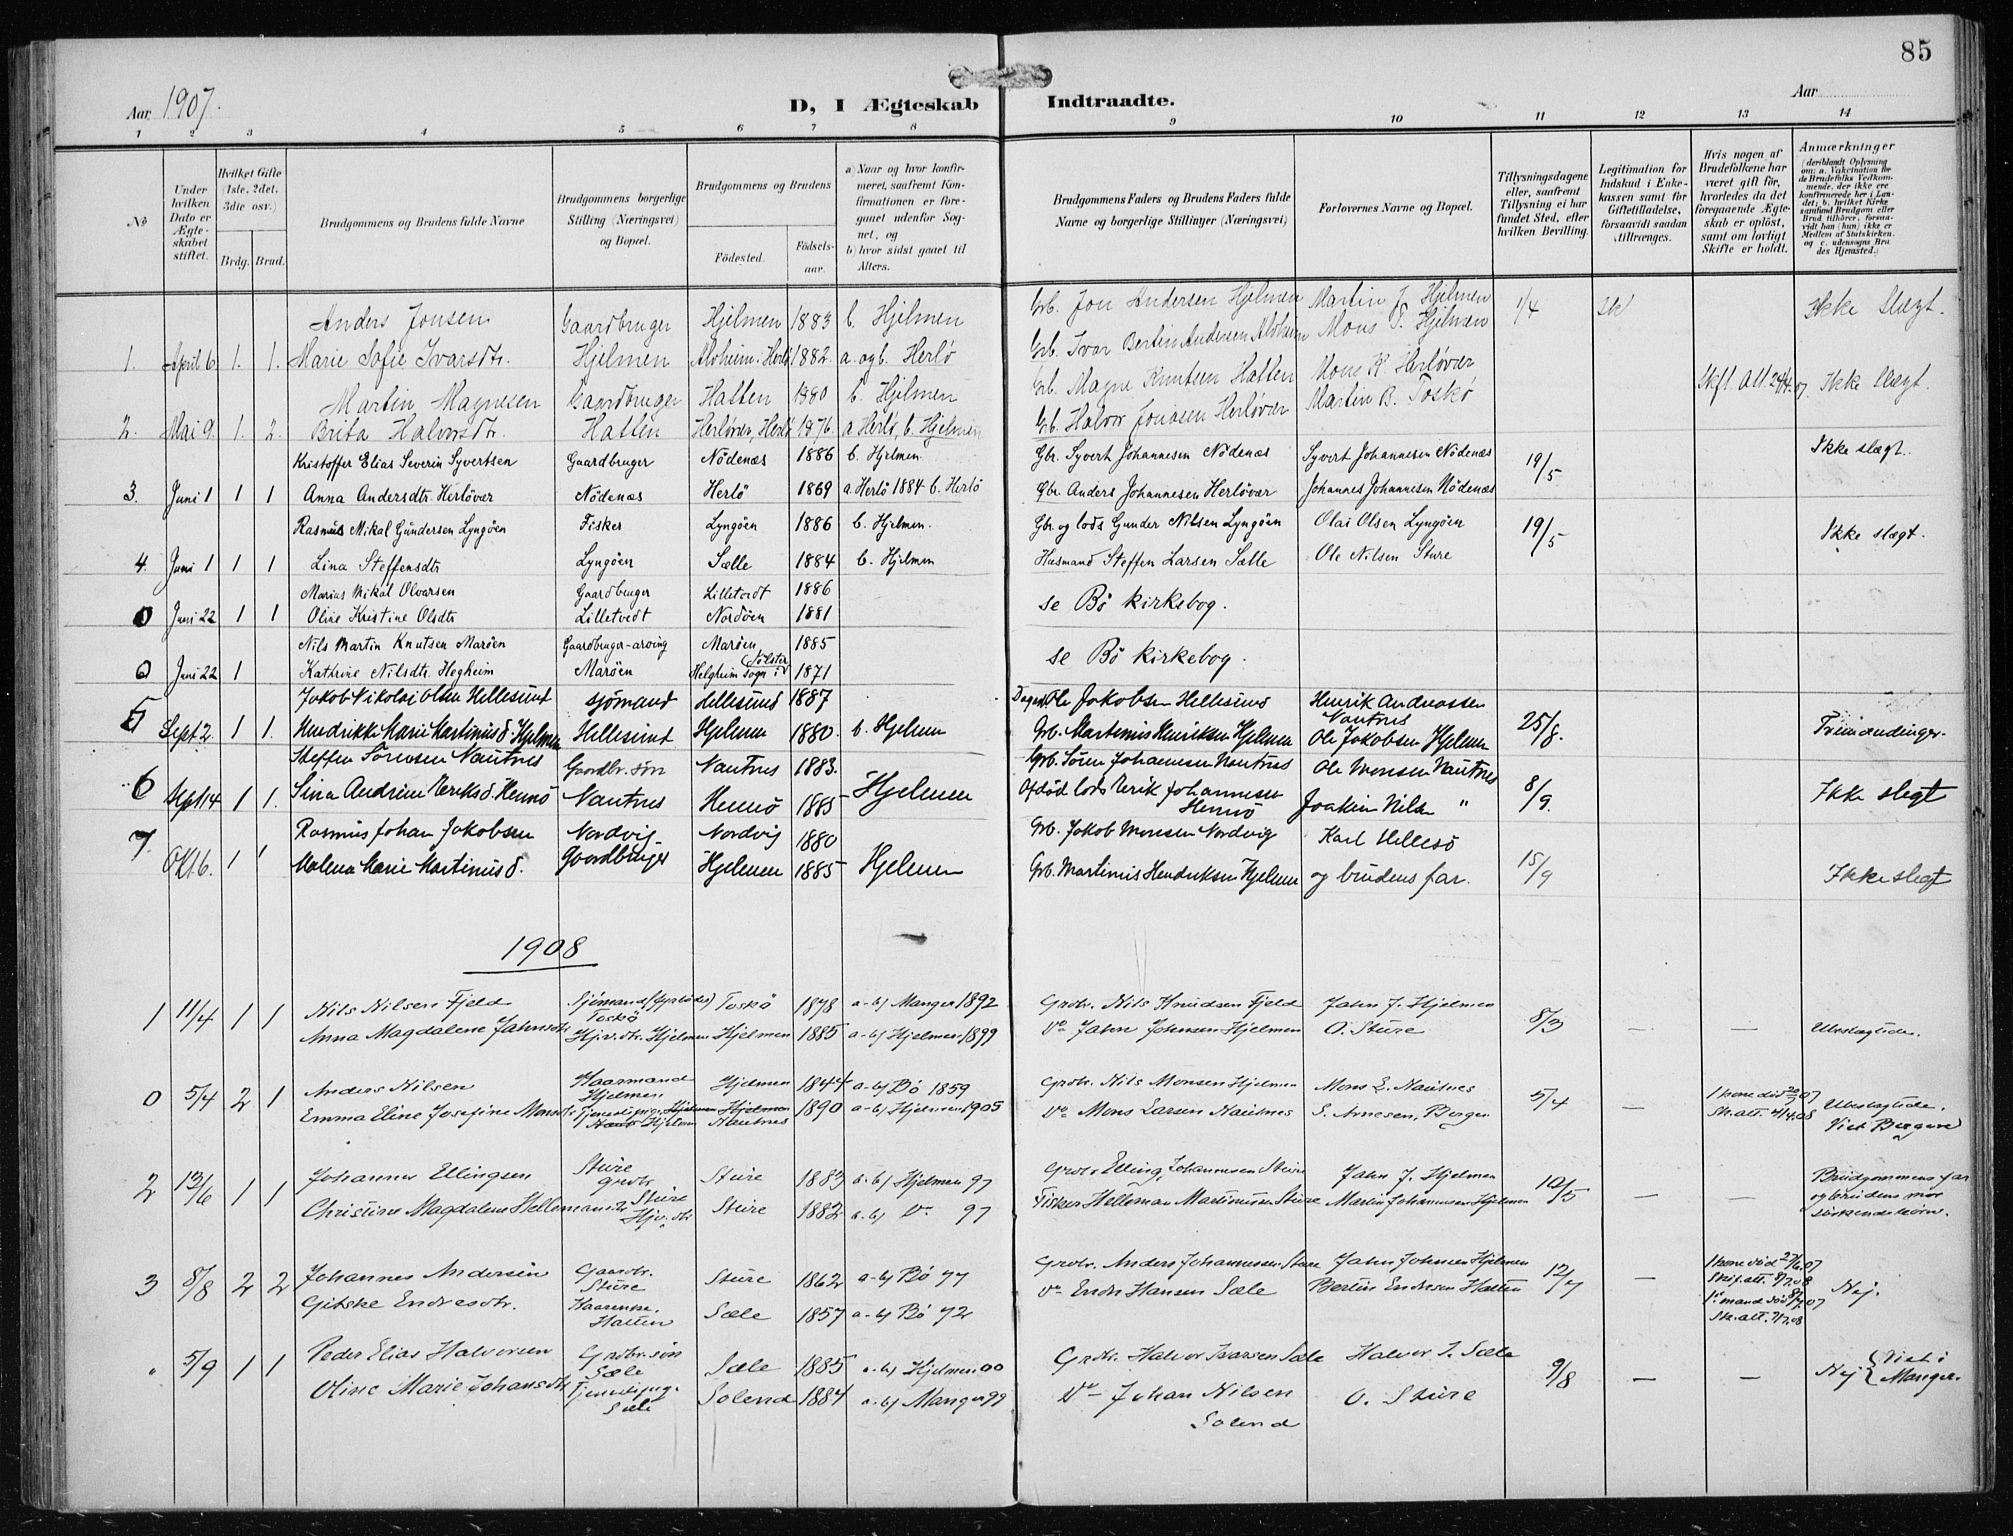 85
Aar 1907.
D, I Ægteskab Indtraadte.
Aar
1 2 3 4 5 6 7 8 9 10 11 12 13 14
No
Under hvilken Dato er Ægteskabet stiftet.
Hvilket Gifte (1ste, 2det, 3die osv.)
Brdg. Brud.
Brudgommens og Brudens fulde Navne
Brudgommens borgerlige Stilling (Næringsvei) og Bopæl.
Brudgommens og Brudens
Födested. Födselsaar.
a) Naar og hvor konfirmeret, saafremt Konfirmationen er foregaaet udenfor Sognet, og
b) hvor sidst gaaet til Alters.
Brudgommens Faders og Brudens Faders fulde Navne og borgerlige Stillinger (Næringsvei)
Forlovernes Navne og Bopæl.
Tillysningsdagene eller, saafremt Tillysning ei har fundet Sted, efter hvilken Bevilling.
Legitimation for Indskud i Enkekassen samt for Giftetilladelse, forsaavidt saadan tiltrænges.
Hvis nogen af Brudefolkene har været gift för, hvorledes da det foregaaende Ægteskab er oplöst, samt om lovligt Skifte er holdt.
Anmærkninger
(deriblandt Oplysning om: a. Vakcination for de Brudefolks Vedkommende, der ikke ere konfirmerede her i Landet; b. hvilket Kirkesamfund Brudgom eller Brud tilhörer, forsaavidt han (hun) ikke er Medlem af Statskirken, og c. udensogns Brudes Hjemsted.)
Anders Jonsen Gaardbruger Hjelmen 1883 b. Hjelmen Grb. Jon Andersen Hjelmen Martin J. Hjelmen 1/4 Ikke Slægt.
1. April 6 1. 1. Marie Sofie Ivarsdtr. Hjelmen Alvheim, Herlö 1882 a. og b. Herlö Grb. Ivar Bertin Andersen Alvheim Mons P. Hjelmen
Martin Magnesen Gaardbruger Hatten 1880 b. Hjelmen Grb. Magne Knutsen Hatten Mons K. Herlöver Skft. att. 24/4 07 Ikke Slægt.
2. Mai 9. 1. 2. Brita Halvorsdtr. Hatten Herlöver, Herlö 1876 a Herlö, b. Hjelmen Grb. Halvor Jonasen Herlöver Martin B. Toskö
Kristoffer Elias Severin Syvertsen Gaardbruger Nödenæs 1886 b. Hjelmen. Gbr. Syvert Johannesen Nödenæs Syvert Johannesen Nödenæs 19/5 Ikke slægt.
3. Juni 1 1 1 Anna Andersdtr. Herlöver Nödenæs Herlö 1869 a. Herlö 1884 b. Herlö Gbr. Anders Johannesen Herlöver Johannes Johannesen Nödenæs
Rasmus Mikal Gundersen Lyngöen Fisker Lyngöen 1886 b. Hjelmen. Gbr. og lods Gunder Nilsen Lyngöen Olai Olsen Lyngöen 19/5 Ikke slægt.
4. Juni 1 1 1 Lina Steffensdtr Lyngöen Sælle 1884 b. Hjelmen Husmand Steffen Larsen Sælle Ole Nilsen Sture
Marius Mikal Olvarsen Gaardbruger Lilletvedt 1886
0 Juni 22 1 1 Oline Kristine Olsdtr Lilletvedt Nordöen 1881 se Bö kirkebog.
Nils Martin Knutsen Maröen Gaardbruger-arving Maröen 1885
0 Juni 22 1 Kathrine Nilsdtr. Hegheim Maröen Helgheim sogn i Jölster 1871 se Bö kirkebog.
Jakob Nikolai Olsen Hellesund sjömand Hellesund 1887 Ole Jakobsen Hellesund Henrik Andreassen Nautnes
5 Sept 2. 1 1. Hendrikke Marie Martinusd. Hjelmen Hellesund Hjelmen 1880. b. Hjelmen Grb. Martinus Henriksen Hjelmen Ole Jakobsen Hjelmen 25/8. Tremendinger.
Steffen Sörensen Nautnes Gaardbr. sön Nautnes 1883. Grb. Sören Johannesen Nautnes Ole Monsen Nautnes
6 Sept 14 1 1. Sina Andrine Eriksd. Hennö Nautnes Hennö 1885 Hjelmen Afdöd lods Erik Johannesen Hennö Joakim Nilsen " 8/9. Ikke slegt
Rasmus Johan Jakobsen Nordvig Nordvig 1880 Grb. Jakob Monsen Nordvig Karl Hellesö
7. Okt. 6. 1 1 Malena Marie Martinusd. Gaardbruger Hjelmen 1885 Hjelmen Grb. Martinus Hendriksen Hjelmen og brudens far. 15/9 Ikke slegt
1908
1 11/4 1 1 Nils Nilsen Fjeld Sjömand Toskö Toskö 1878 a-b) Manger 1892 Grdbr. Nils Knudsen Fjeld Jahn J. Hjelmen 8/3 — — Ubeslægtede.
Anna Magdalene Jahnsdtr Hj.v. dtr. Hjelmen Hjelmen 1885 a-b) Hjelmen 1899 Do Jahn Johnsen Hjelmen O. Sture
0 5/4 2 1 Anders Nilsen Kaarmand Hjelmen Hjelmen 1844 a-b) Bö 1859 Grdbr. Nils Monsen Hjelmen Mons L. Nautnes 5/4 — 1 kone död 20/ 07 Sk. att. 4/4. 08 Ubeslægtede. Viet Bergen
Emma Eline Josefine Monsdtr Tjenestepige Hjelmen Nautnes 1890 a-b) Hjelmen 1905 Do Mons Larsen Nautnes S. Arnesen, Bergen
2 13/6 1 1 Johannes Ellingsen Sture grdbr. Sture 1883 a-b) Hjelmen 97 Grdbr. Elling Johannesen Sture Jahn J. Hjelmen 10/5 — — Brudgommens far og brudens mor söskendebörn.
Christine Magdalene Hellemansdtr Sture Hjv. dtr Sture 1882 a-b) Do 97 Fisker Helleman Martinussen Sture Martin Johannessen Hjelmen
3 8/8 2 2 Johannes Andersen Gaardbr. Sture Sture 1862 a-b) Bö 77 Grdbr. Anders Johannessen Sture Jahn Johnsen Hjelmen 12/7 — 1 kone död 27/6. 07 Skif. att. 7/7. 08 Nej.
Gitske Endresdtr. Kaarenke. Hatten Sæle 1857 a-b) Bö 72 Do Endre Hansen Sæle Bertin Endresen Hatten 1. mand död 8/7 07 Sk. att. 7/7. 08
" 5/9 1 1 Peder Elias Halvorsen Grdbr. sön Sæle Sæle 1885 a-b) Hjelmen 00 Grdbr. Halvor Ivarsen Sæle Halvor I. Sæle 9/8 — — Nej { Viet i Manger.
Oline Marie Johansdtr Tjenestepige Sæle Solend 1884 a-b) Manger 99 Do Johan Nilsen Solend O. Sture